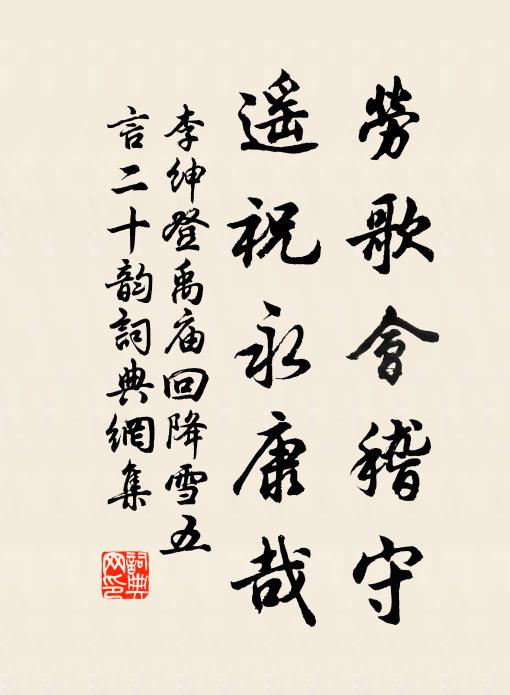 勞歌會稽守
遥祝永康哉
李紳登禹庙回降雪五
言二十韵詞典網集
詞典
网印